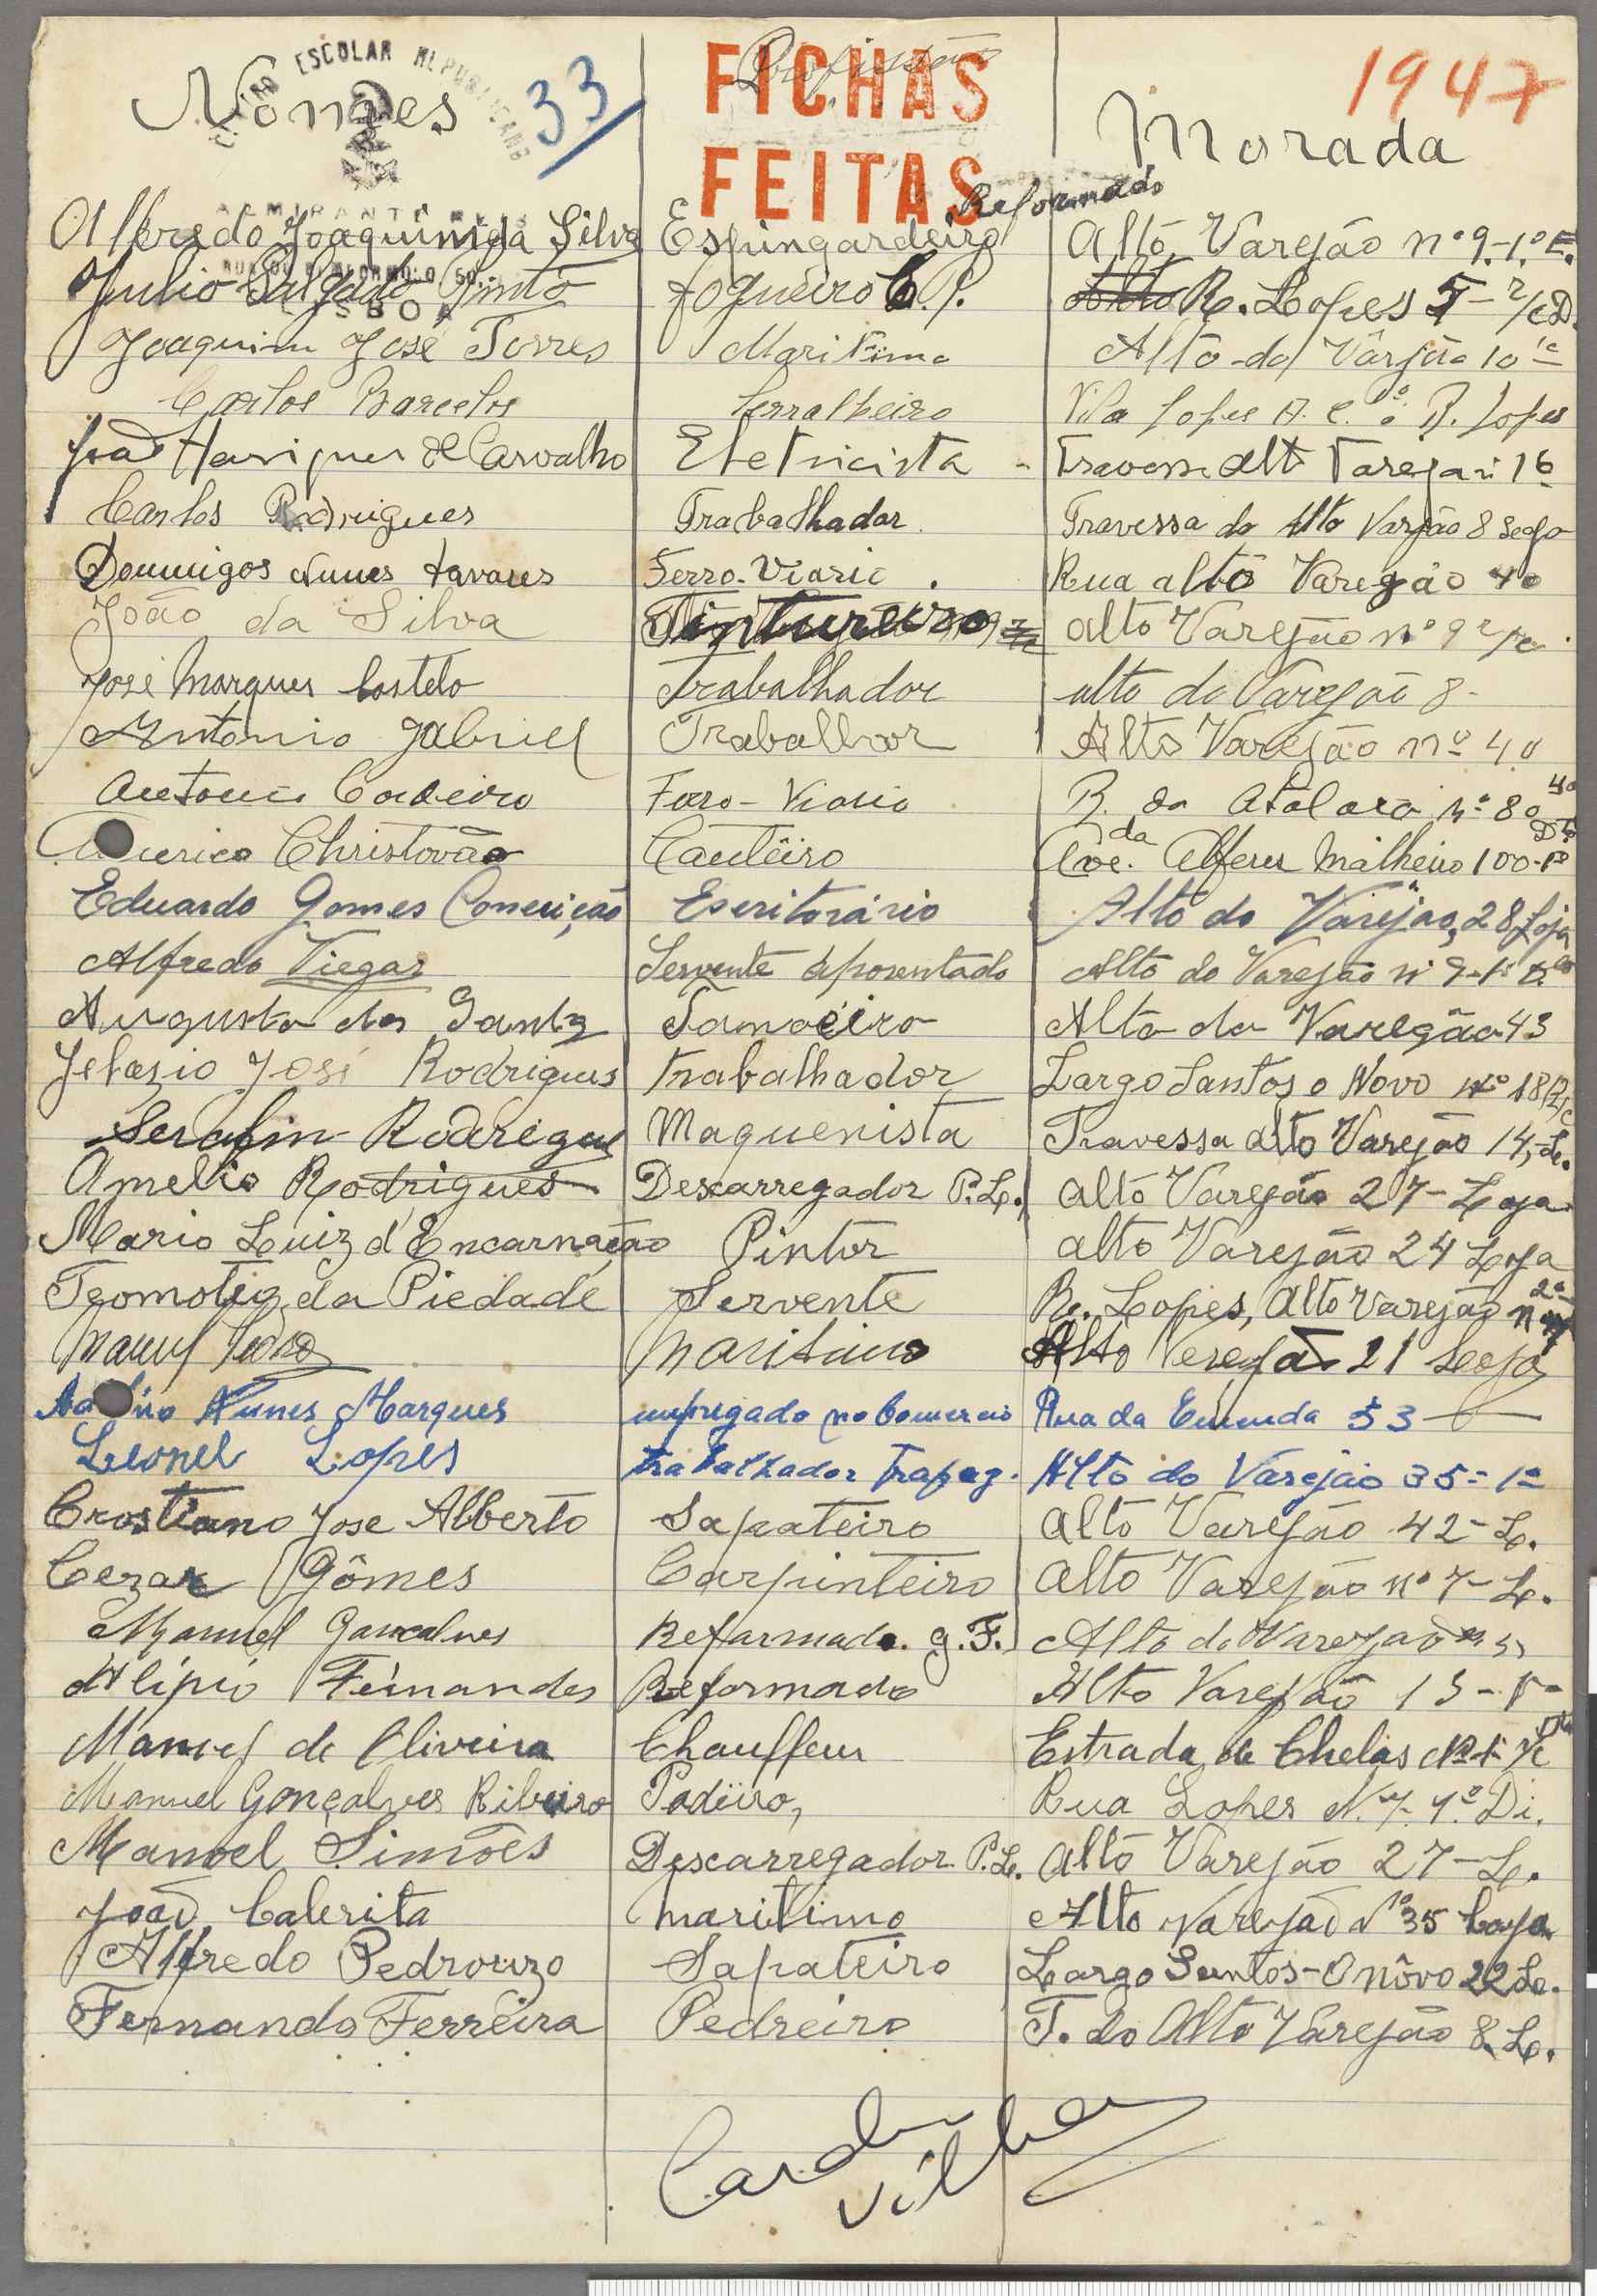 Nomes 33 Profissão Morada 1947
ESCOLAR REPUBLICANO
ALMIRANTE REIS
LISBOA
FICHAS
FEITAS
Reformado
Alfredo Joaquim da Silva Espingardeiro Alto Varejão nº 9-1º E.
Julio Salgado Pinto fogueiro C.P. Alto R. Lopes 5-r/c D.
Joaquim José Torres Maritimo Alto do Varjão 10
Carlos Barcelos Serralheiro Vila Lopes R. Lopes
João Henriques de Carvalho Eletricista Travessa Alto Varejão 16
Carlos Rodrigues Trabalhador Travessa do Alto Varjão 8
Domingos Nunes tavares Ferro-Viario Rua alto Varegão 40
João da Silva Tintureiro alto Varejão nº 9 r/c
José Marques Castelo Trabalhador alto do Varejão 8
Antonio Gabriel Trabalhor Alto Varejão nº 40
Antonio Cordeiro Ferro-Viario R. da Atalaia nº 80 4º Dto
Christovão Ave. da Alferes Malheiro 100-1º
Eduardo Gomes Conceição Escritorário Alto do Varejão, 28 Loja
Alfredo Viegas Servente aposentado Alto do Varejão nº 9-1º
Augusto dos Santos Alto do Varegão 43
José Rodrigues Trabalhador Largo Santos o Novo nº 18 R/c
Serafin Rodrigues Maquenista Travessa Alto Varejão 14, L.
Amelio Rodrigues Descarregador P.L. Alto Varejão 27-Loja
Mario Luiz d'Encarnação Pintor alto Varejão 24 Loja
Teomotio da Piedade Servente R. Lopes, Alto Varejão 2º
Maritimo Alto Verejão 21
Nunes Marques empregado no Comercio Rua da Emenda 53
Leonel Lopes trabalhador Alto do Varejão 35-1º
Crostiano Jose Alberto Sapateiro Alto Varejão 42-L.
Cezar Gômes Carpinteiro Alto Varejão nº 7-L.
Manuel Goncalves Reformado. G.F. Alto do Varejão
Alípio Fernandes Reformado Alto Varejão 13-1º
Manuel de Oliveira Chauffeur Estrada de Chelas
Manuel Gonçalves Ribeiro Padeiro, Rua Lopes N.7-1º Di.
Manoel Simões Descarregador P.L. Alto Varejão 27-L.
João Calerita maritimo Alto Varejão Nº 35 Loja
Alfredo Pedrouzo Sapateiro Largo Santos-O nôvo 22 L.
Fernando Ferreira Pedreiro T. do Alto Varejão 8. L.